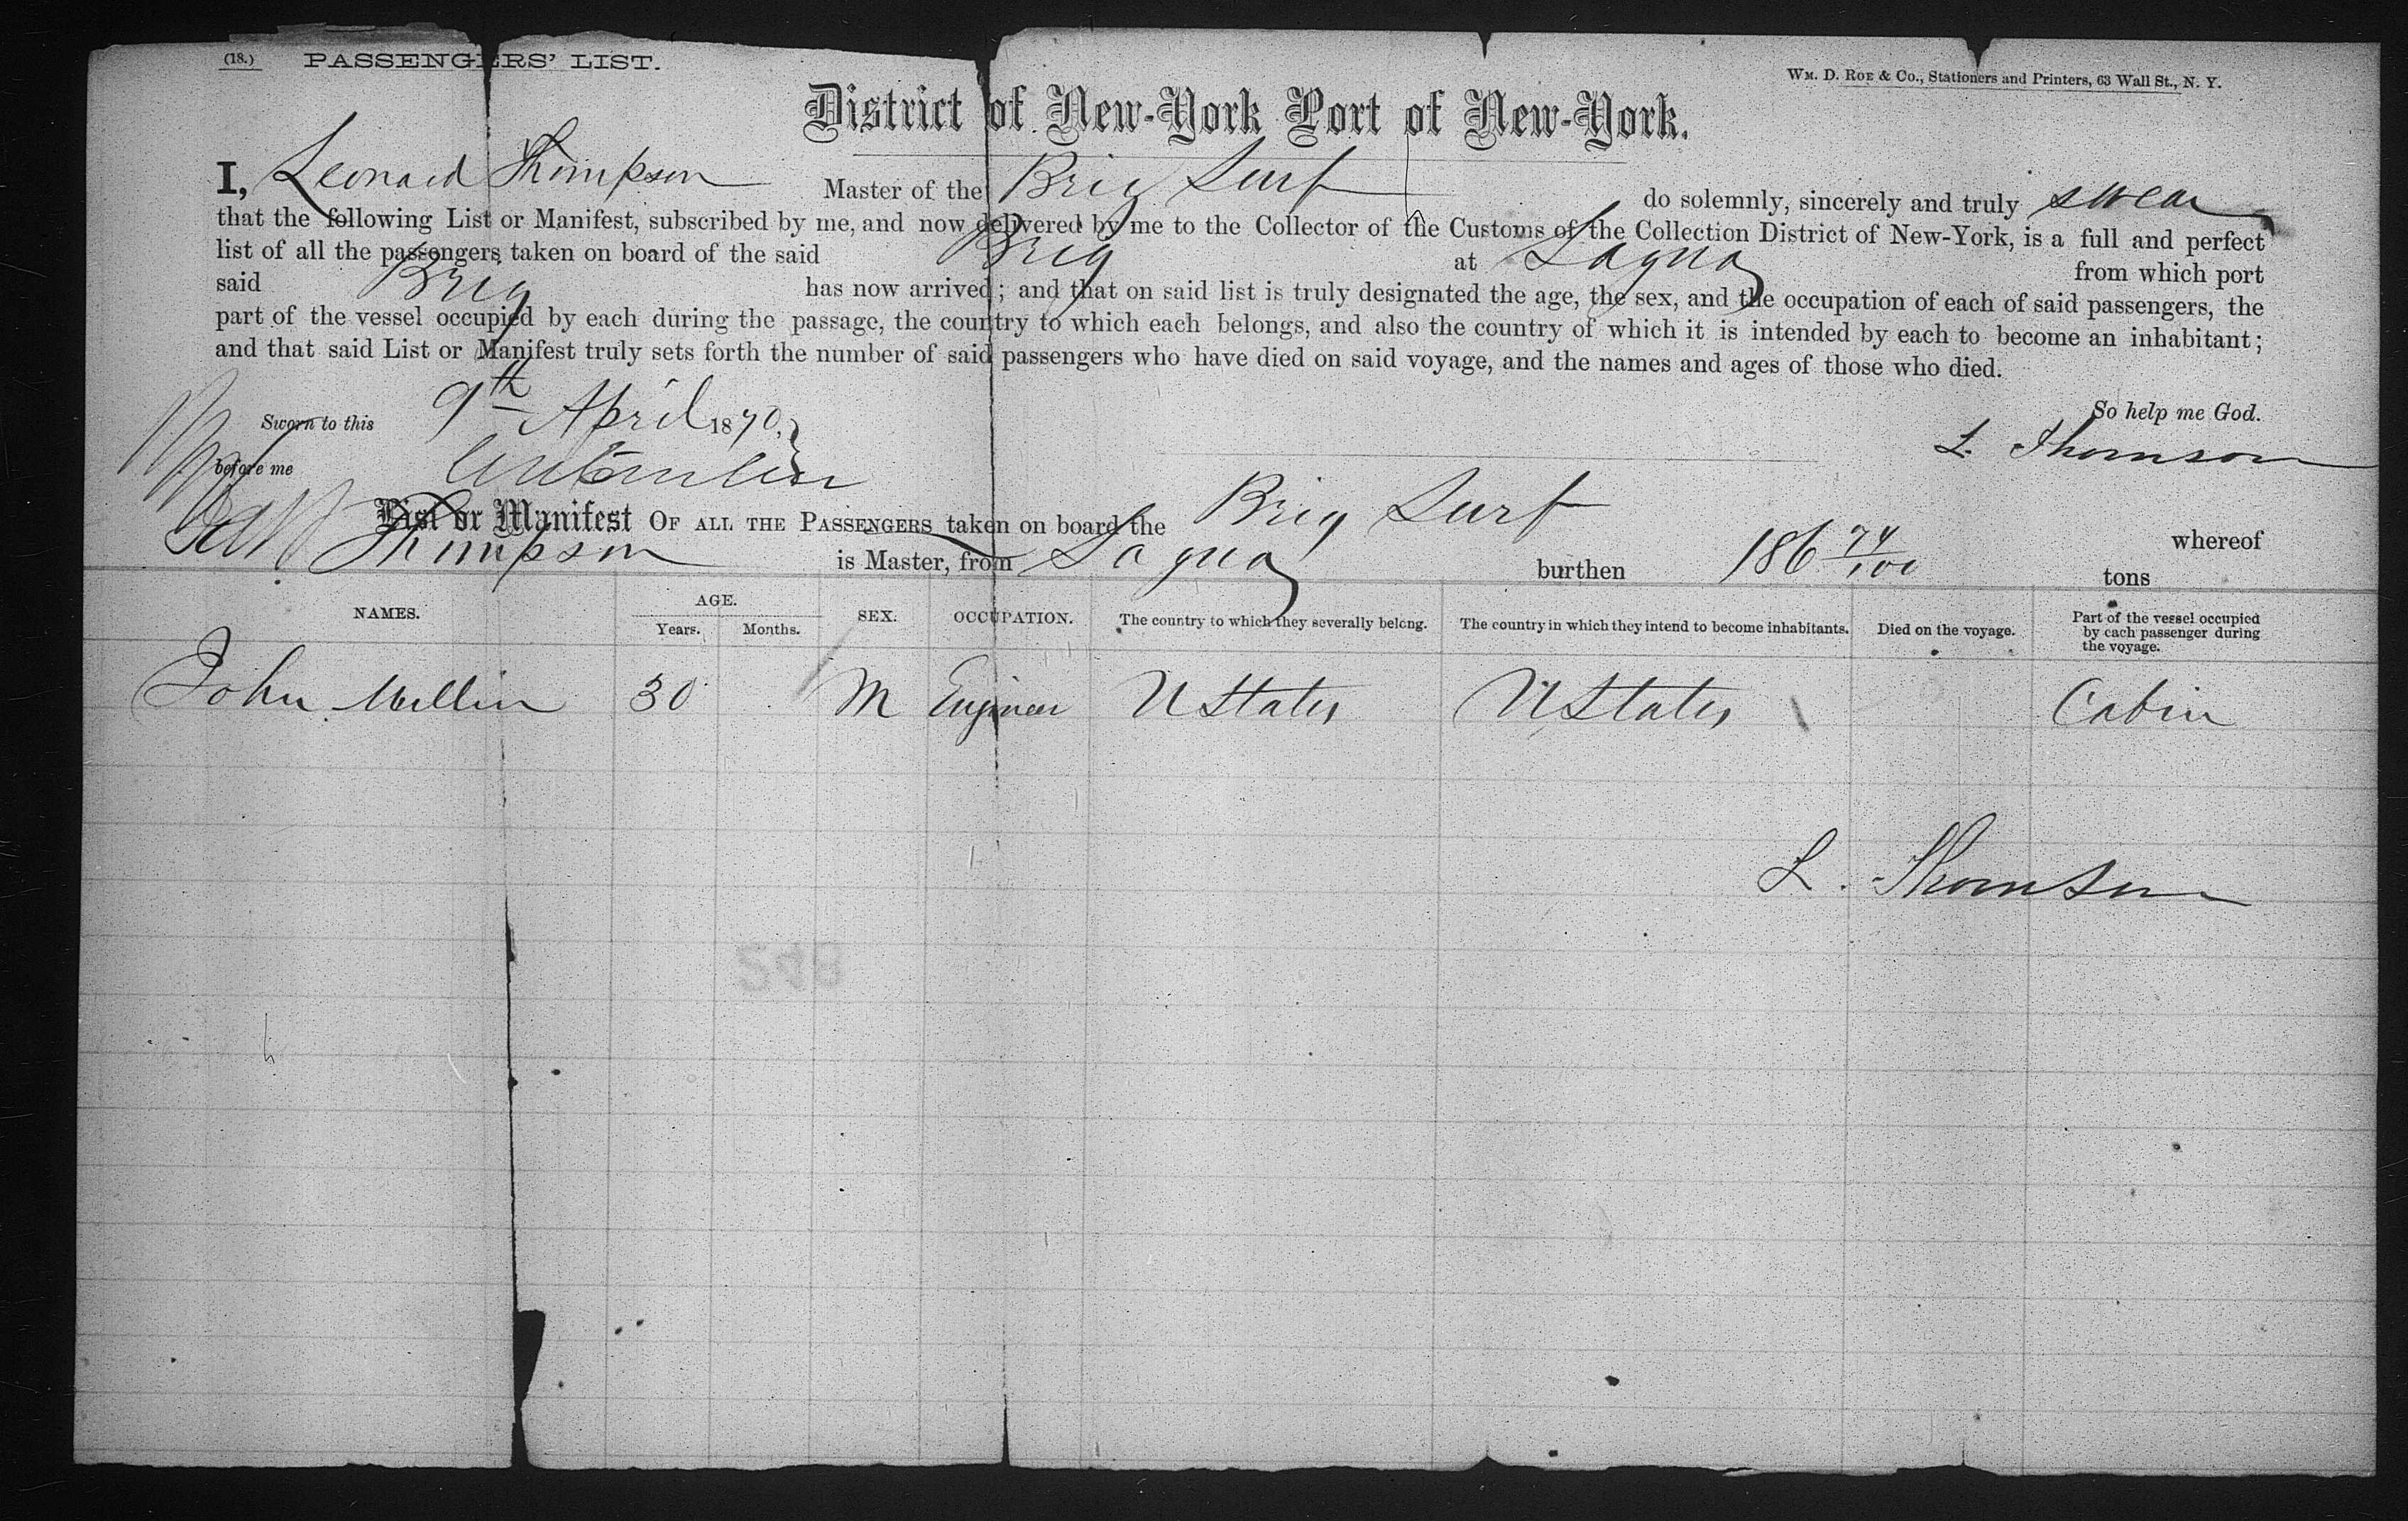 (18.) PASSENGERS' LIST.
WM. D. ROE & CO., Stationers and Printers, 63 Wall St., N. Y.
District of New-York Port of New-York.
I, Leonard Thompson Master of the Brig Surf do solemnly, sincerely and truly swear
that the following List or Manifest, subscribed by me, and now delivered by me to the Collector of the Customs of the Collection District of New-York, is a full and perfect
list of all the passengers taken on board of the said Brig at Sagua from which port
said Brig has now arrived; and that on said list is truly designated the age, the sex, and the occupation of each of said passengers, the
part of the vessel occupied by each during the passage, the country to which each belongs, and also the country of which it is intended by each to become an inhabitant;
and that said List or Manifest truly sets forth the number of said passengers who have died on said voyage, and the names and ages of those who died.
So help me God.
Sworn to this 9th April 1870,
L. Thomson
before me
List or Manifest OF ALL THE PASSENGERS taken on board the Brig Surf whereof
Thompson is Master, from Sagua burthen 186 74/100 tons
NAMES. AGE. Years. Months. SEX. OCCUPATION. The country to which they severally belong. The country in which they intend to become inhabitants. Died on the voyage. Part of the vessel occupied by each passenger during the voyage.
John Mellin 30 M Engineer U States U States Cabin
L. Thomson